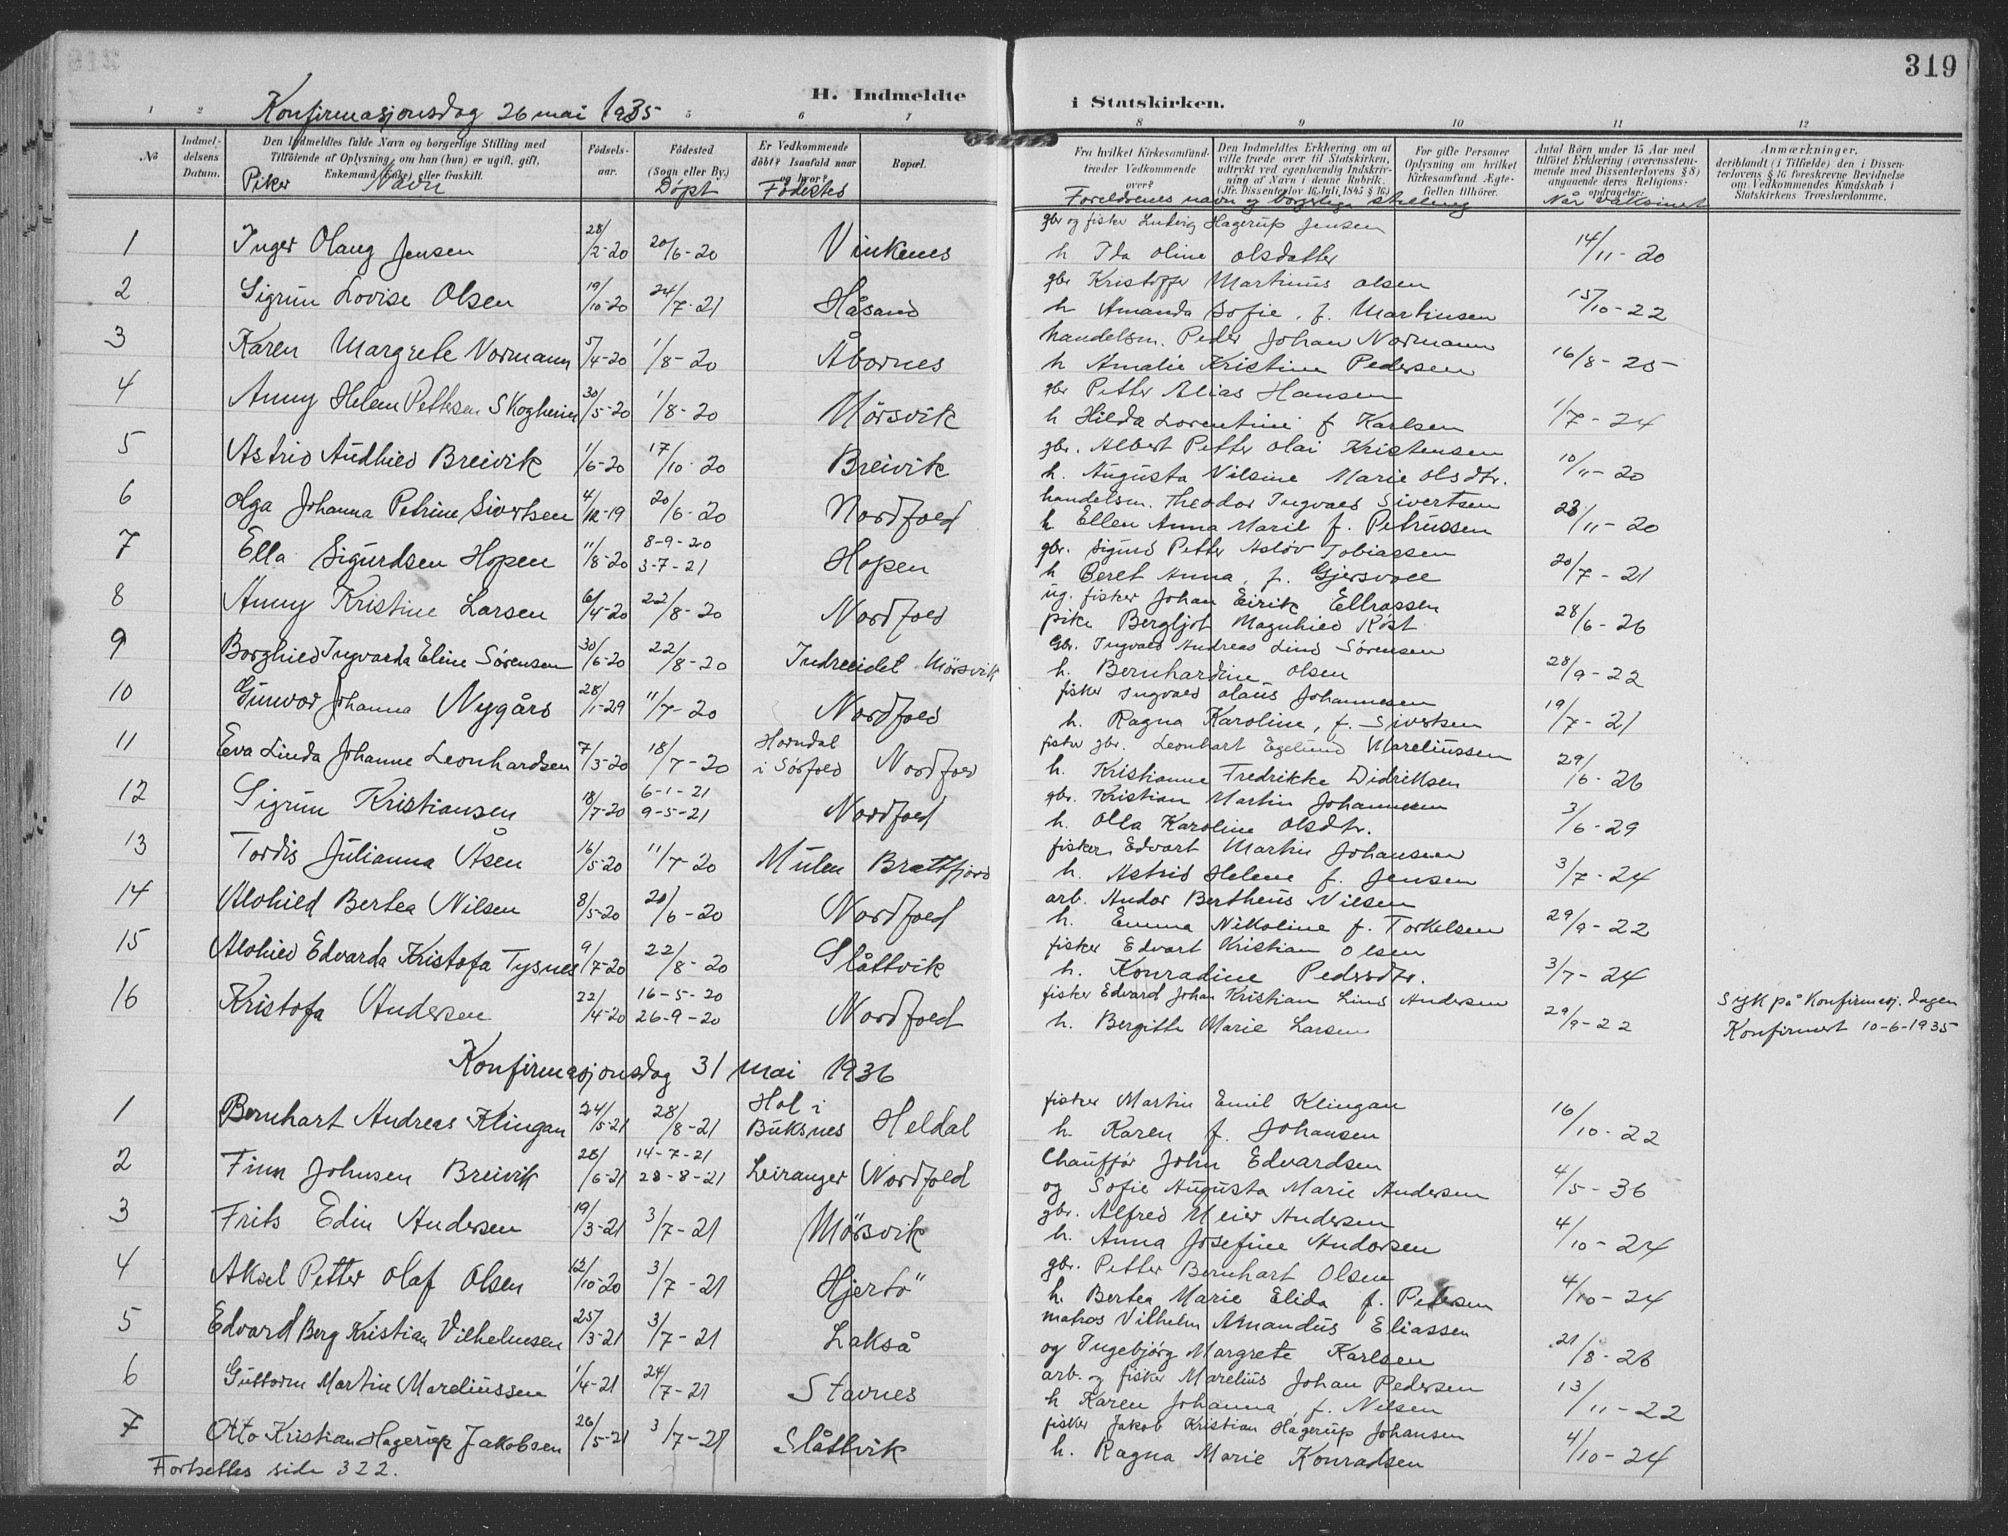 319
H. Indmeldte i Statskirken.
Konfirmasjonsdag 26 mai 1935
1 2 5 6 7 8 9 10 11 12
No
Indmel-
delsens
Datum.
Den Indmeldtes fulde Navn og borgerlige Stilling med
Tilføiende af Oplysning, om han (hun) er ugift, gift,
Enkemand (Enke) eller fraskilt.
Piker Navn
Fødsels-
aar.
Fødested
(Sogn eller By.)
Döpt
Er Vedkommende
døbt? Isaafald naar
og hvor?
Födested
Bopæl.
Fra hvilket Kirkesamfund-
træder Vedkommende
over?
Den Indmeldtes Erklæring om at
ville træde over til Statskirken,
udtrykt ved egenhændig Indskriv-
ning af Navn i denne Rubrik.
(Jfr. Dissenterlov 16 Juli, 1845 § 16)
For gifte Personer
Oplysning om hvilket
Kirkesamfund Ægte-
fællen tilhører.
Foreldrenes navn og borgerlige stilling
Antal Børn under 15 Aar med
tilføiet Erklæring (overensstem-
mende med Dissenterlovens § 8)
angaaende deres Religions-
opdragelse.
Når vaksinert
Anmærkninger,
deriblandt (i Tilfælde) den i Dissen-
terlovens § 16 foreskrevne Bevidnelse
om Vedkommendes Kundskab i
Statskirkens Troeslærdomme.
1 Inger Olaug Jensen 28/2-20 20/6-20 Vinkenes gbr og fisker Ludvig Hagerup Jensen 14/11-20
h Ida Oline Olsdatter
2 Sigrun Lovise Olsen 19/10-20 24/7-21 Håsand gbr Kristoffer Martinus Olsen 15/10-22
h Amanda Sofie, f. Martinsen
3 Karen Margrete Normann 5/4-20 1/8-20 Åbornes handelsm. Peder Johan Normann 16/8-25
h Amalie Kristine Pedersen
4 Anny Helene Pettersen Skogheim 30/5-20 1/8-20 Mörsvik gbr Petter Alias Hansen 1/7-24
h Hilda Lorentine f Karlsen
5 Astrid Audhild Breivik 1/6-20 17/10-20 Breivik gbr. Albert Petter Olai Kristensen 10/11-20
h. Augusta Nilsine Marie Olsdtr.
6 Olga Johanna Petrine Sivertsen 4/12-19 20/6-20 Nordfold handelsm. Theodor Ingvald Sivertsen 28/11-20
h Ellen Anna Marie f. Petrussen
7 Ella Sigurdsen Hopen 11/8-20 8-9-20 Hopen gbr. Sigurd Petter Asløv Tobiassen 20/7-21
3-7-21 h Beret Anna, f. Gjersvoll
8 Anny Kristine Larsen 6/4-20 22/8-20 Nordfold ug. fisker Johan Eirik Ellrassen 28/6-26
pike Bergljot Magnhild Röst
9 Borghild Ingvarda Eline Sørensen 30/6-20 22/8-20 Indreeidet Mörsvik Gbr. Ingvald Andreas Lind Sørensen 28/9-22
h. Bernhardine Olsen
10 Gunvor Johanna Nygård 28/1-29 11/7-20 Nordfold fisker Ingvald Olaus Johannesen 19/7-21
h. Ragna Karoline, f. Sivertsen
11 Eva Linda Johanne Leonhardsen 7/3-20 18/7-20 Horndal i Sørfold Nordfold fisker gbr. Leonhart Egelund Mareliussen 29/6-26
h. Kristianne Fredrikke Didriksen
12 Sigrun Kristiansen 18/7-20 6-1-21 Nordfold gbr. Kristian Martin Johannesen 3/6-29
9-5-21 h. Olla Karoline Olsdtr.
13 Tordis Julianna Åsen 16/5-20 11/7-20 Mulen Brattfjord fisker Edvart Martin Johansen 3/7-24
h. Astrid Helene f. Jensen
14 Alvhild Bertea Nilsen 8/5-20 20/6-20 Nordfold arb. Andor Bertheus Nilsen 29/9-22
h. Emma Nikoline f. Torkelsen
15 Alvhild Edvarda Kristofa Tysnes 9/7-20 22/8-20 Slåttvik fisker Edvart Kristian Olsen 3/7-24
h. Konradine Pedersdtr.
16 Kristofa Andersen 22/4-20 16-5-20 Nordfold fisker Edvard Johan Kristian Lind Andersen 29/9-22 Syk på Konfirmasj. dagen
26-9-20 h. Bergitte Marie Larsen Konfirmert 10-6-1935
Konfirmasjonsdag 31 mai 1936
1 Bernhart Andreas Klingan 24/5-21 28/8-21 Hol i Buksnes Heldal fisker Martin Emil Klingan 16/10-22
h. Karen f. Johansen
2 Finn Johnsen Breivik 28/6-21 14-7-21 Leiranger Nordfold Chauffør John Edvardsen 4/5-36
28-8-21 og Sofie Augusta Marie Andersen
3 Frits Edin Andersen 19/3-21 3/7-21 Mörsvik gbr. Alfred Meier Andersen 4/10-24
h. Anna Josefine Andersen
4 Aksel Petter Olaf Olsen 12/10-20 3/7-21 Hjertö gbr. Petter Bernhart Olsen 4/10-24
h. Bertea Marie Elida f. Pedersen
5 Edvard Berg Kristian Vilhelmsen 25/3-21 3/7-21 Lakså matros Vilhelm Amandus Eliassen 21/8-26
og Ingebjørg Margrete Karlsen
6 Guttorm Martin Mareliussen 1/4-21 24/7-21 Stavnes arb. og fisker Marelius Johan Pedersen 13/11-22
h Karen Johanna, f. Nilsen
7 Otto Kristian Hagerup Jakobsen 26/5-21 3/7-21 Slåttvik fisker Jakob Kristian Hagerup Johansen 4/10-24
h. Ragna Marie Konradsen
Fortsettes side 322.